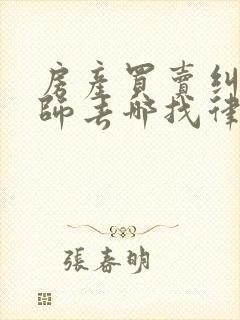 房產買賣糾
師去哪找律
張春明